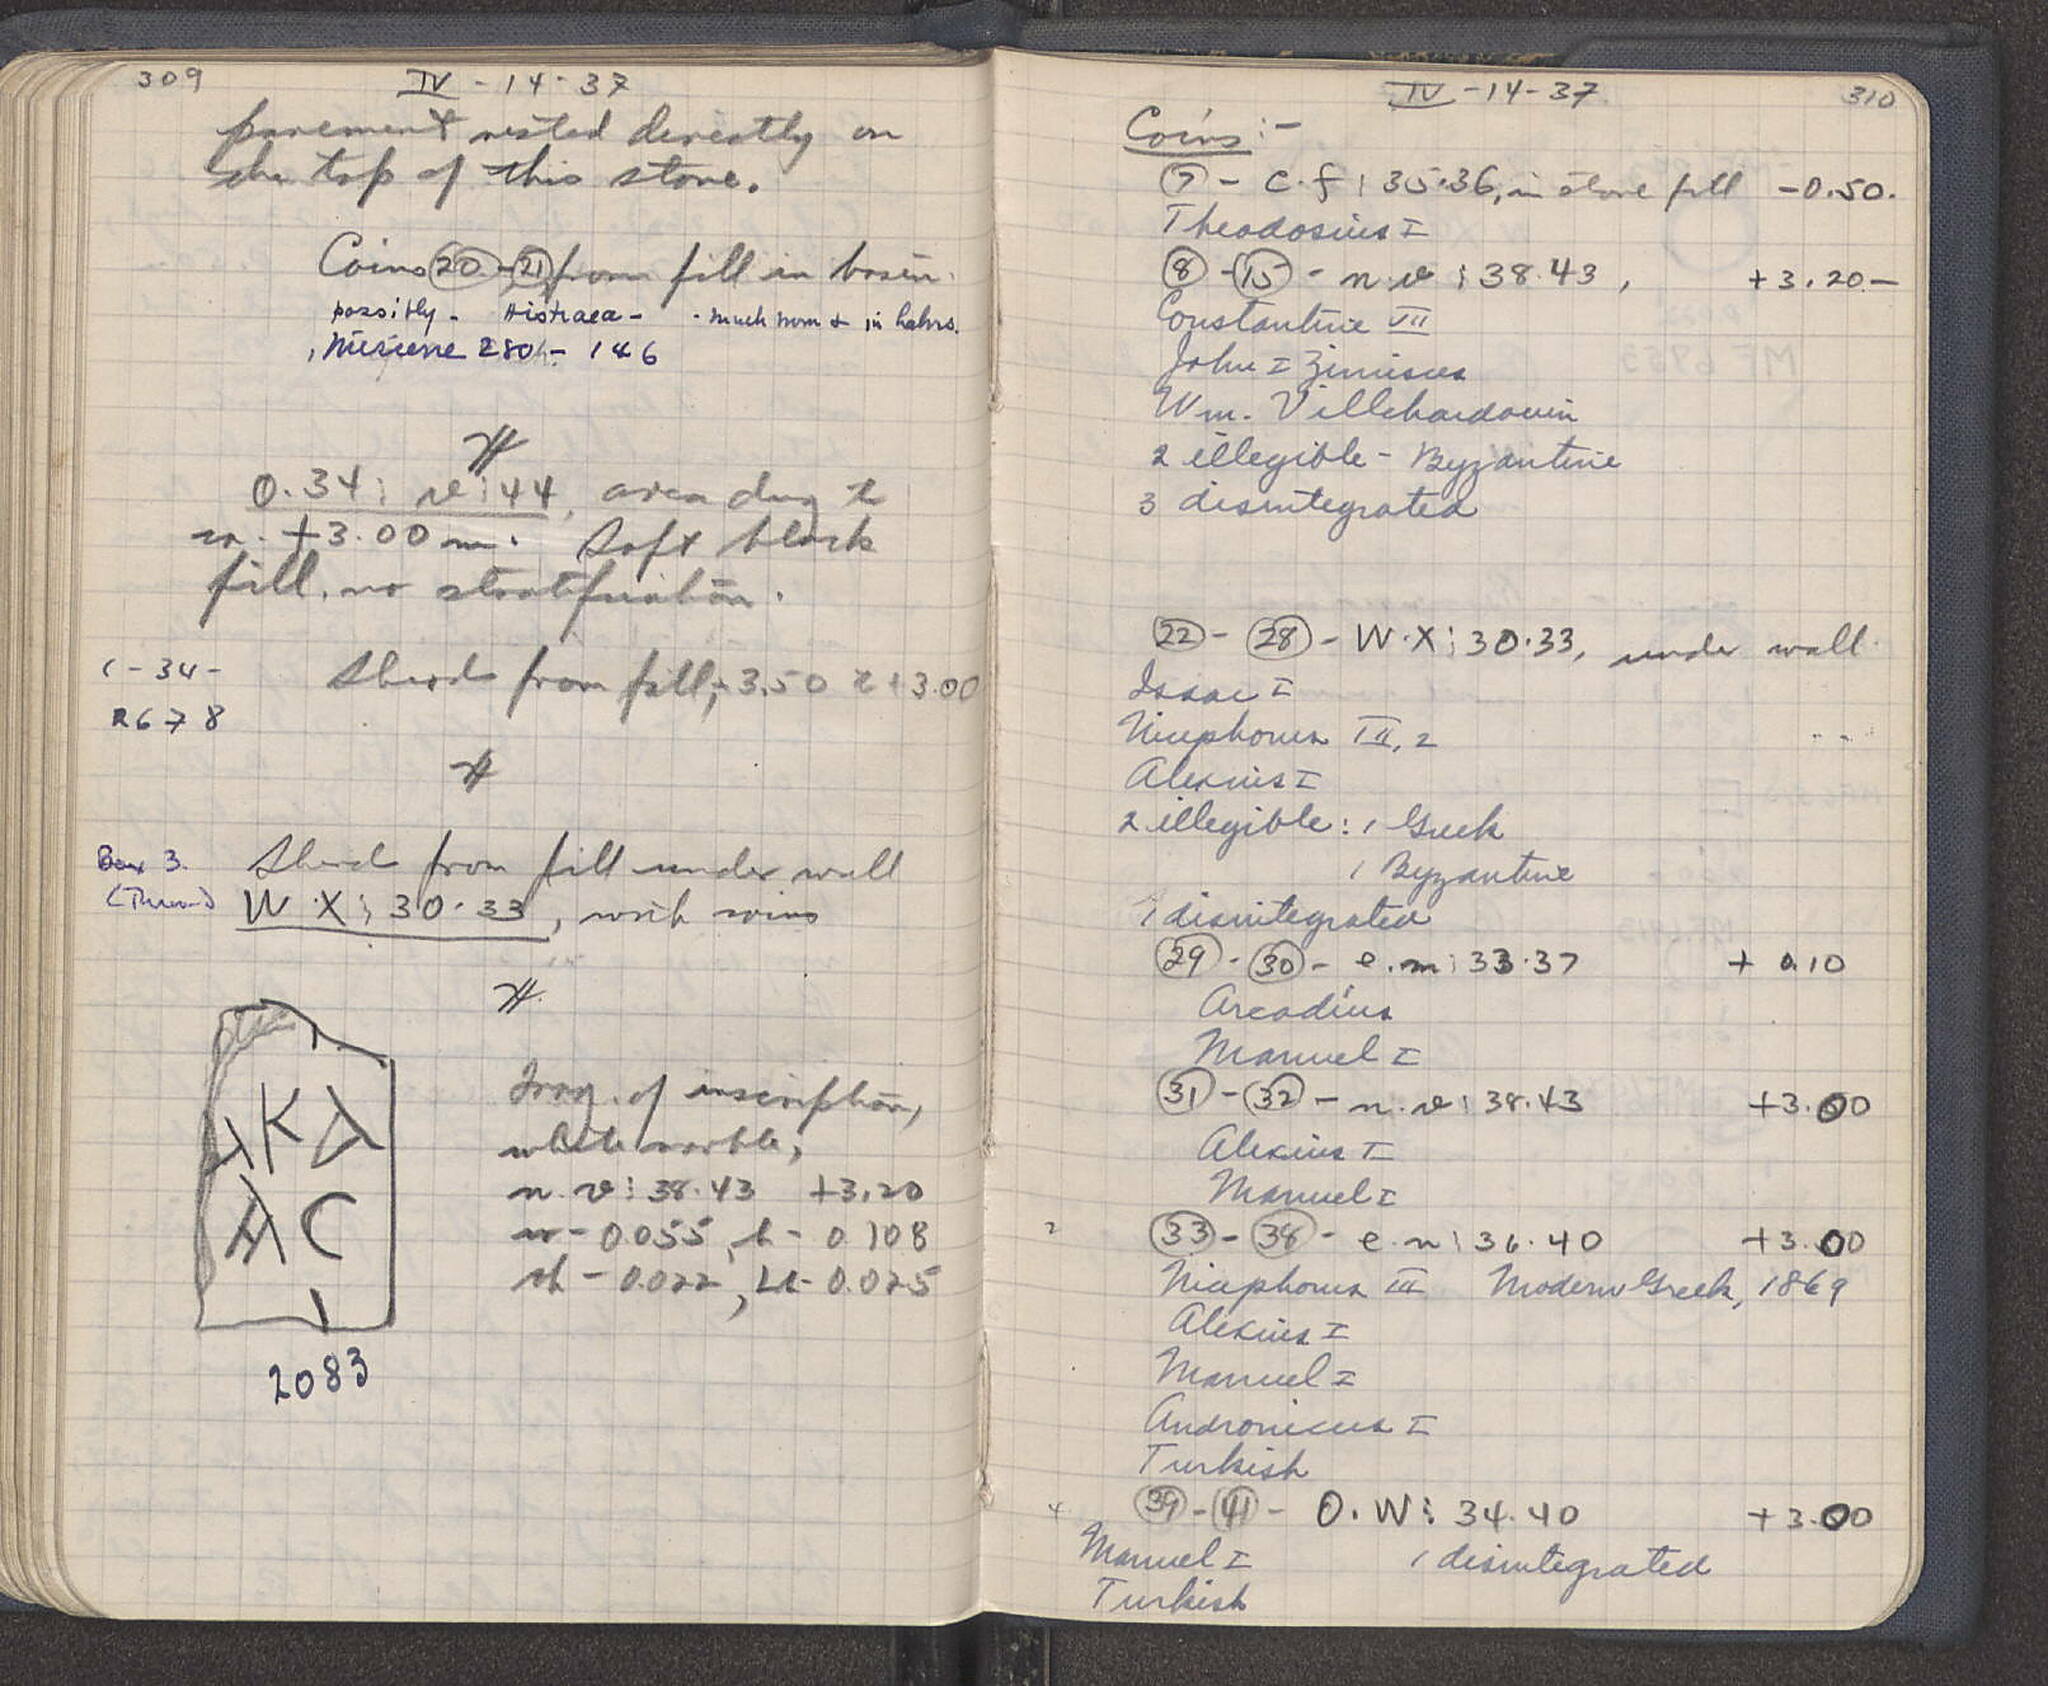 309
IV - 14 - 37
pavement rested directly on
the top of this stone.
Coins 20 - 21 from fill in basin.
possibly - Histiaea - much worn &
280 - 146
#
O.34 : v : 44, area dug to
+3.00 m. Soft black
fill, no stratification.
C - 34 -
R 678
Sherds from fill, +3.50 to +3.00
#
Box 3.
(Thrown)
Sherds from fill under wall
W.X : 30.33, with coins
#
Frag. of inscription,
white marble,
n.v : 38.43 +3.20
w - 0.055, h - 0.108
th - 0.022, LH - 0.025
ΚΛ
C
2083
IV - 14 - 37
310
Coins :-
7 - c.f : 35.36, in stone fill -0.50.
Theodosius I
8 - 15 - n.v : 38.43, +3.20 -
Constantine VII
John I Zimisces
Wm. Villehardouin
2 illegible - Byzantine
3 disintegrated
22 - 28 - W.X : 30.33, under wall.
Isaac I
Nicephorus III, 2
Alexius I
2 illegible : 1 Greek
1 Byzantine
1 disintegrated
29 - 30 - e.m : 33.37 + 0.10
Arcadius
Manuel I
31 - 32 - n.v : 38.43 +3.00
Alexius I
Manuel I
2
33 - 38 - e.n : 36.40 +3.00
Nicephorus III Modern Greek, 1869
Alexius I
Manuel I
Andronicus I
Turkish
4
39 - 41 - O.W : 34.40 +3.00
Manuel I 1 disintegrated
Turkish